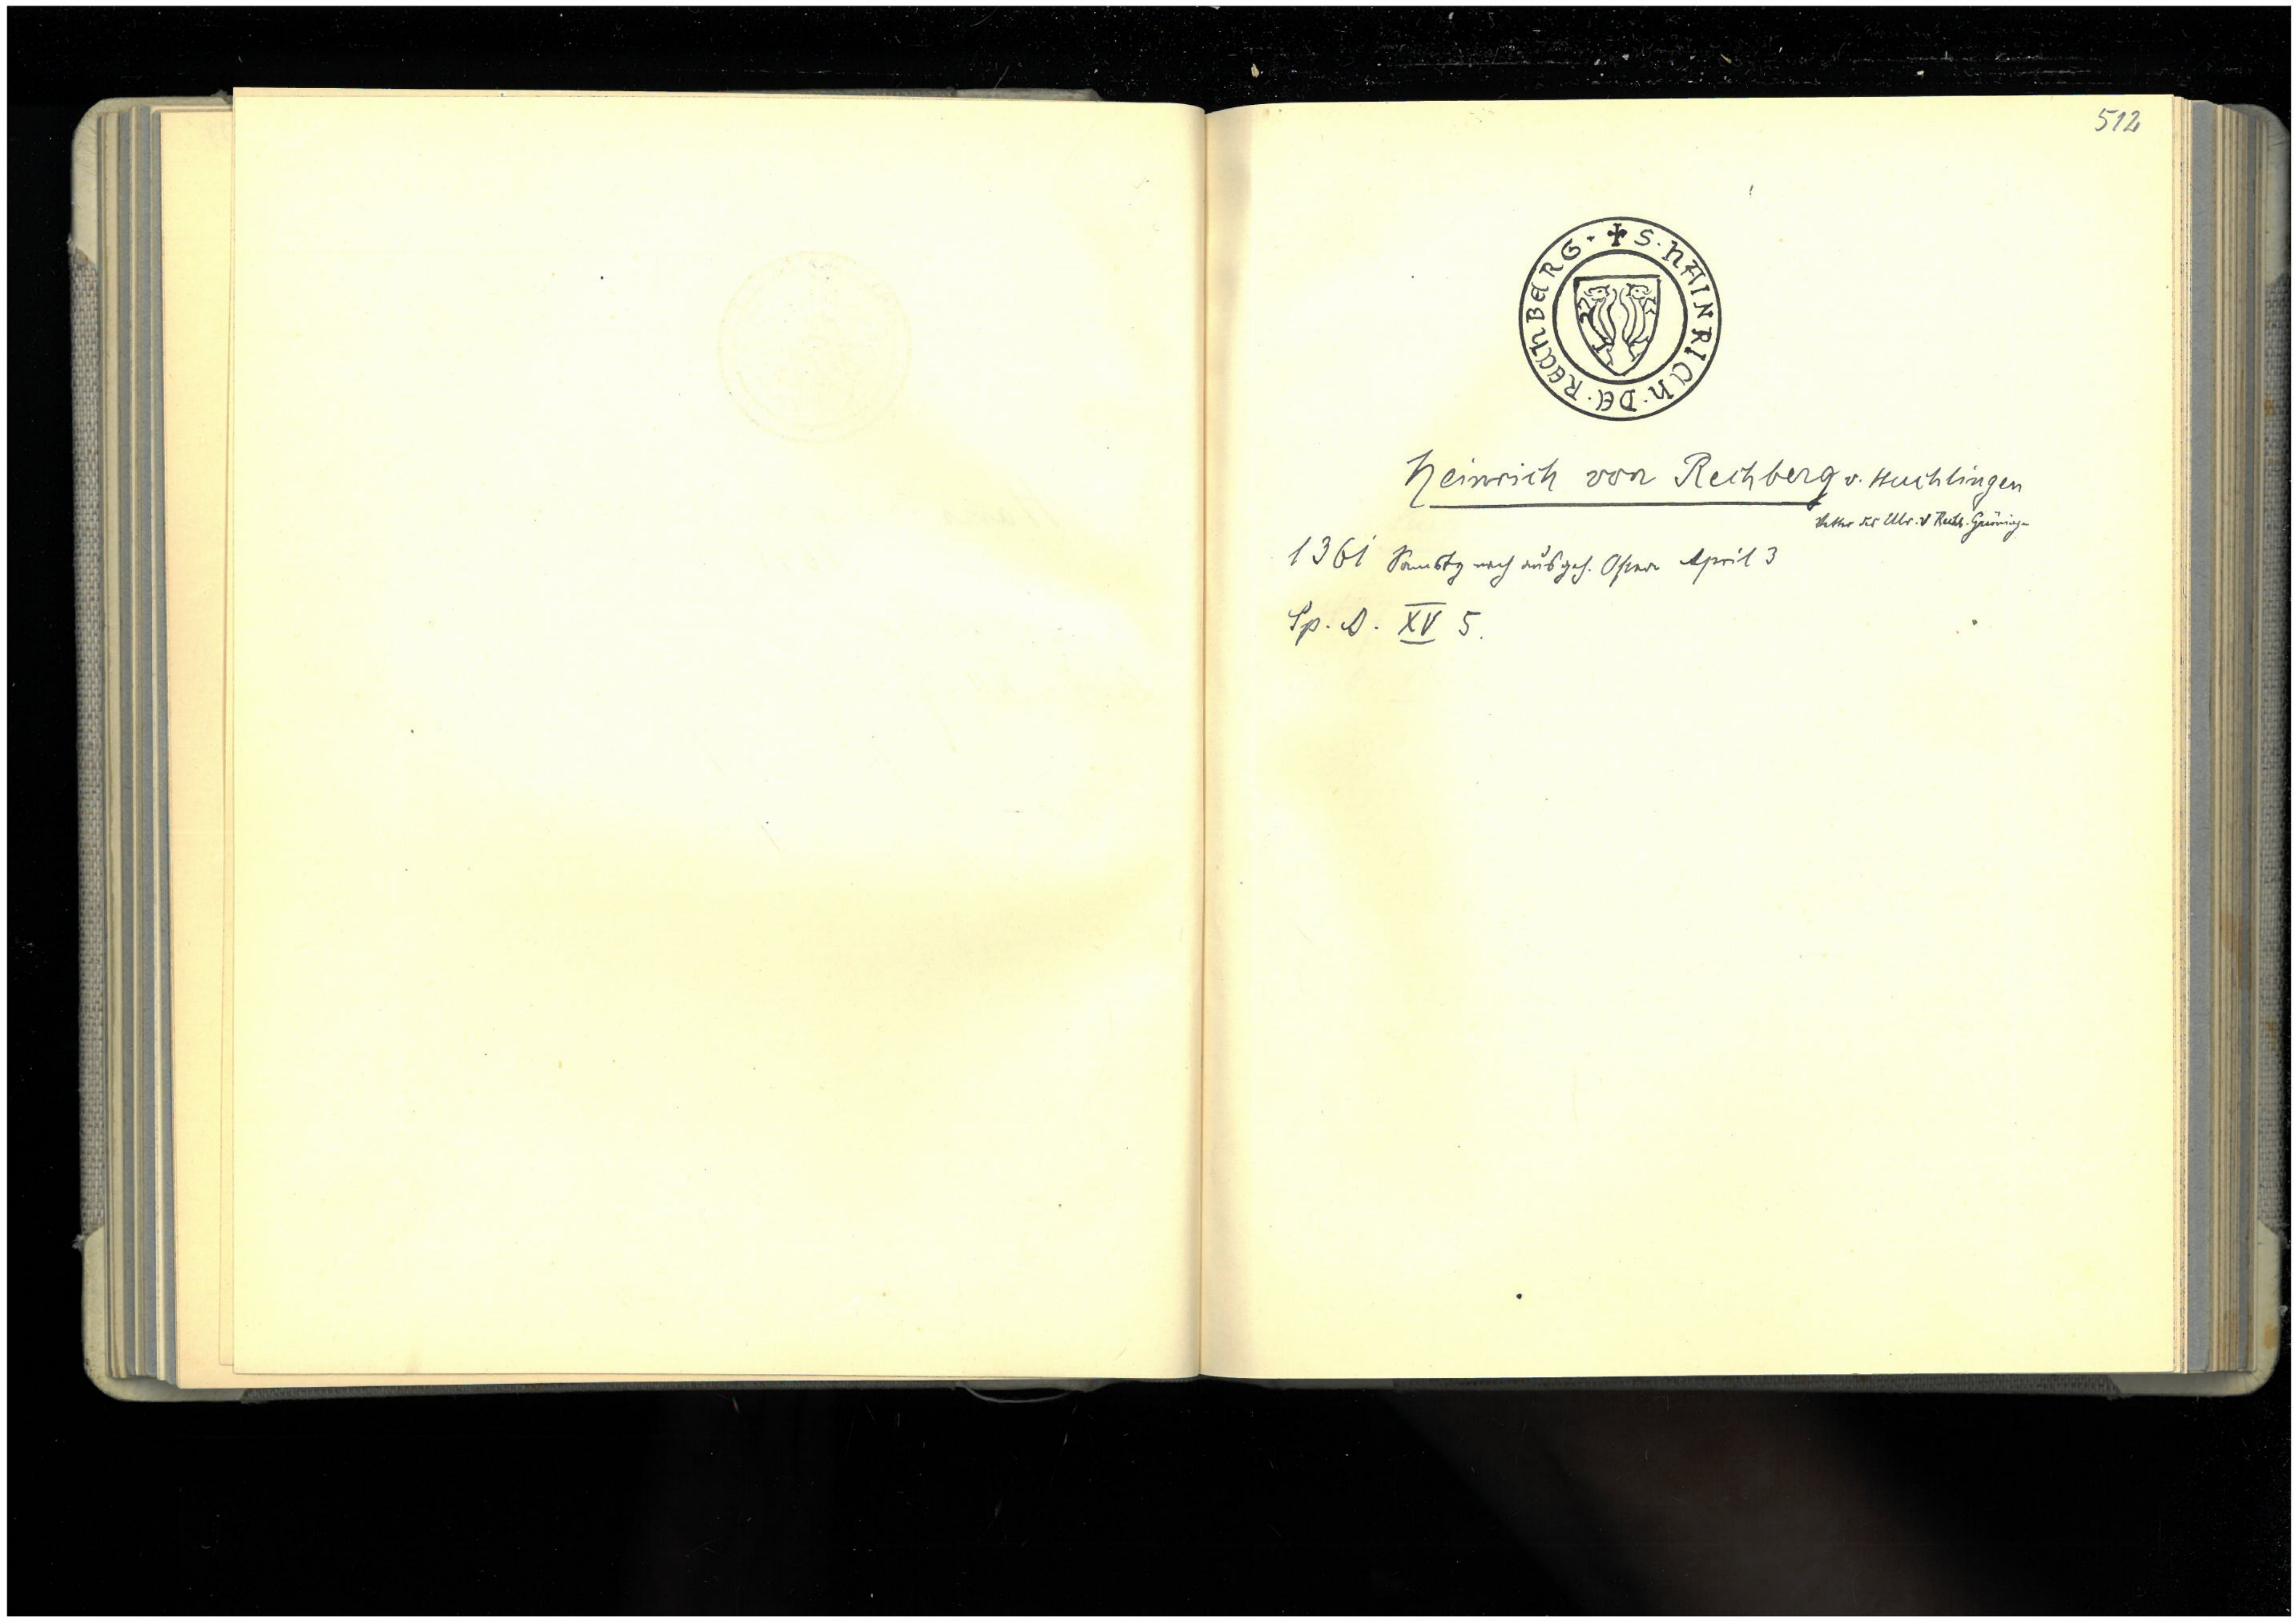 512
✠ S · HAINRICH · DE · RECHBERG ·
Heinrich von Rechberg v. Heuchlingen
Vetter des Ulr. v Rechb. Gröning
1361 Samstg nach ausgeh. Ostern April 3
Sp. A. XV 5.